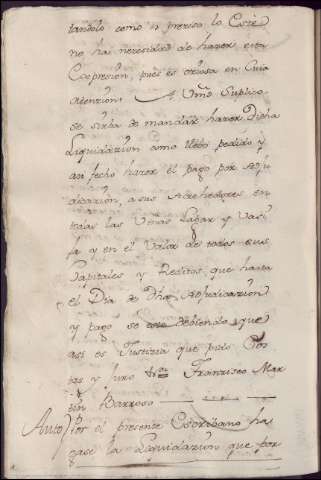 tandolo como es preciso lo Este
no ha necesidad de haver esta
Expresion, pues es osiosa en Cuia
atenzion. A Vmd Suplico
se sirba de mandar hazer Dicha
Liquidazion como llebo pedido y
asi fecho hazer el pago por Adju
dicazion, a sus Acrehedores en
todas las Viñas Lagar y Vasi
ja y en el Valor de todos sus
Capitales y Reditos, que hasta
el Dia de Dha Adjudicazion
y pago se este debiendo, que
asi es Justizia que pido Cos
tas y Juro &ra Francisco Mar
tin Barroso
Auto) Por el presente Escribano ha
gase la Liquidazion que por